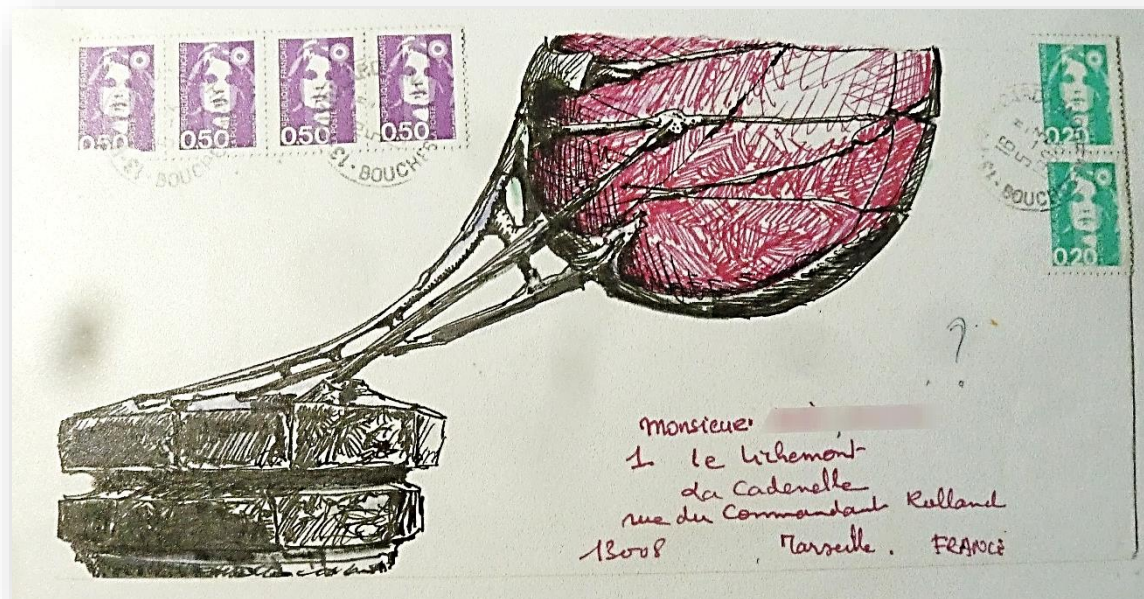 0.50
0.50
0.50
0.50
0.20
0.20
BOUCHES
?
Monsieur
1 le
La Cadenelle
rue du Commandant Rolland
13008 Marseille. FRANCE